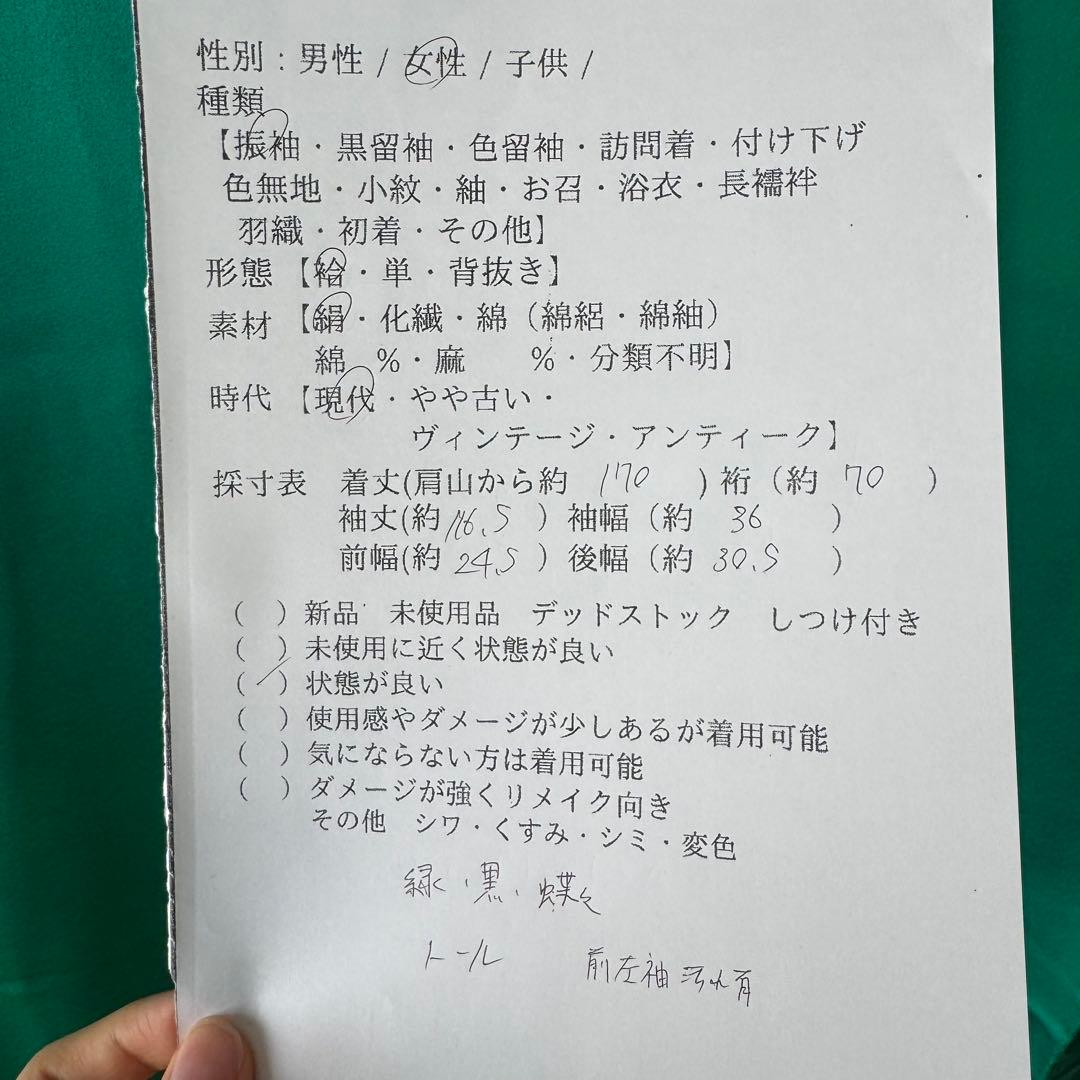 性別：男性 / 女性 / 子供 /
種類
【振袖・黒留袖・色留袖・訪問着・付け下げ
色無地・小紋・紬・お召・浴衣・長襦袢
羽織・初着・その他】
形態【袷・単・背抜き】
素材【絹・化繊・綿（綿絽・綿紬）
綿　％・麻　　％・分類不明】
時代【現代・やや古い・
ヴィンテージ・アンティーク】
採寸表　着丈(肩山から約　170　) 裄（約　70　）
袖丈(約 116.5 ）袖幅（約　36　）
前幅(約 24.5 ）後幅（約 30.5　）
（　）新品　未使用品　デッドストック　しつけ付き
（　）未使用に近く状態が良い
（／）状態が良い
（　）使用感やダメージが少しあるが着用可能
（　）気にならない方は着用可能
（　）ダメージが強くリメイク向き
その他　シワ・くすみ・シミ・変色
緑・黒・蝶々
トール　前左袖 汚れ有